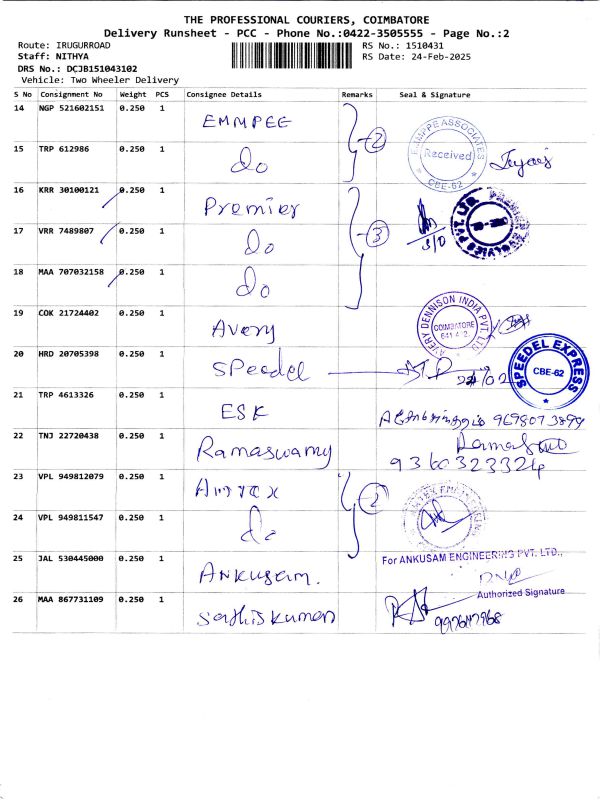 THE PROFESSIONAL COURIERS, COIMBATORE
Delivery Runsheet - PCC - Phone No.:0422-3505555 - Page No.:2
Route: IRUGURROAD
RS No.: 1510431
Staff: NITHYA
RS Date: 24-Feb-2025
DRS No.: DCJB151043102
Vehicle: Two Wheeler Delivery
S No Consignment No Weight PCS Consignee Details Remarks Seal & Signature
14 NGP 521602151 0.250 1 EMMPEE 2
15 TRP 612986 0.250 1 do Received CBE-62
16 KRR 30100121 0.250 1 Premier
17 VRR 7489807 0.250 1 do 3
18 MAA 707032158 0.250 1 do
19 COK 21724402 0.250 1 Avery AVERY DENNISON INDIA PVT. LTD COIMBATORE
20 HRD 20705398 0.250 1 SPeedel SPEEDEL EXPRESS CBE-62
21 TRP 4613326 0.250 1 ESK 9698073899
22 TNJ 22720438 0.250 1 Ramaswamy 9360323324
23 VPL 949812079 0.250 1 2
24 VPL 949811547 0.250 1 do
25 JAL 530445000 0.250 1 Ankusam. For ANKUSAM ENGINEERING PVT. LTD.,
Authorized Signature
26 MAA 867731109 0.250 1 Sathiskumar